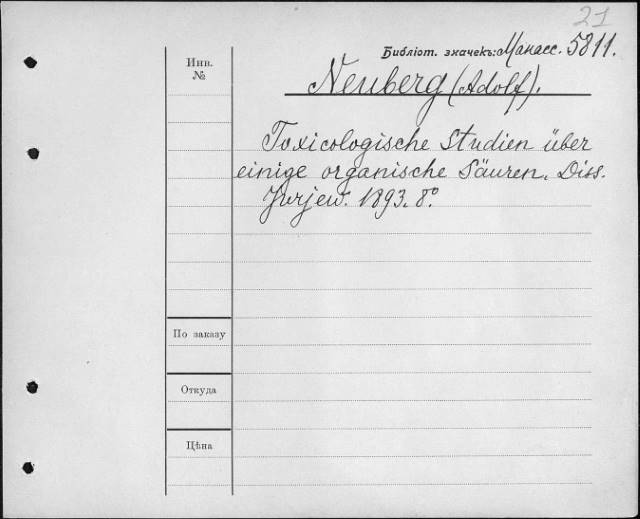 21
Библіот. значекъ: Манасс. 5811.
Инв.
№
Neuberg (Adolf).
Toxicologische Studien über
einige organische Säuren. Diss.
Jurjew. 1893. 8°
По заказу
Откуда
Цѣна